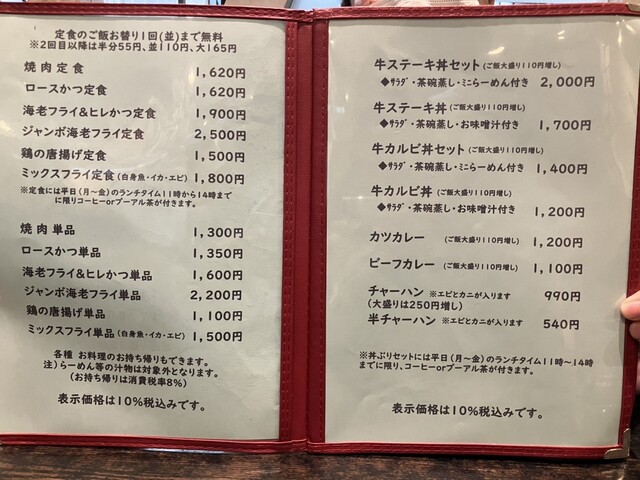 定食のご飯お替り1回(並)まで無料
※2回目以降は半分55円、並110円、大165円
焼肉定食 1,620円
ロースかつ定食 1,620円
海老フライ&ヒレかつ定食 1,900円
ジャンボ海老フライ定食 2,500円
鶏の唐揚げ定食 1,500円
ミックスフライ定食(白身魚・イカ・エビ) 1,800円
※定食には平日(月~金)のランチタイム11時から14時まで
に限りコーヒーorプーアル茶が付きます。
焼肉単品 1,300円
ロースかつ単品 1,350円
海老フライ&ヒレかつ単品 1,600円
ジャンボ海老フライ単品 2,200円
鶏の唐揚げ単品 1,100円
ミックスフライ単品(白身魚・イカ・エビ) 1,500円
各種 お料理のお持ち帰りもできます。
注)らーめん等の汁物は対象外となります。
(お持ち帰りは消費税率8%)
表示価格は10%税込みです。
牛ステーキ丼セット(ご飯大盛り110円増し)
◆ｻﾗﾀﾞ・茶碗蒸し・ミニらーめん付き 2,000円
牛ステーキ丼(ご飯大盛り110円増し)
◆ｻﾗﾀﾞ・茶碗蒸し・お味噌汁付き 1,700円
牛カルビ丼セット(ご飯大盛り110円増し)
◆ｻﾗﾀﾞ・茶碗蒸し・ミニらーめん付き 1,400円
牛カルビ丼(ご飯大盛り110円増し)
◆ｻﾗﾀﾞ・茶碗蒸し・お味噌汁付き 1,200円
カツカレー (ご飯大盛り110円増し) 1,200円
ビーフカレー (ご飯大盛り110円増し) 1,100円
チャーハン ※エビとカニが入ります 990円
(大盛りは250円増し)
半チャーハン ※エビとカニが入ります 540円
※丼ぶりセットには平日(月~金)のランチタイム11時~14時
までに限り、コーヒーorプーアル茶が付きます。
表示価格は10%税込みです。